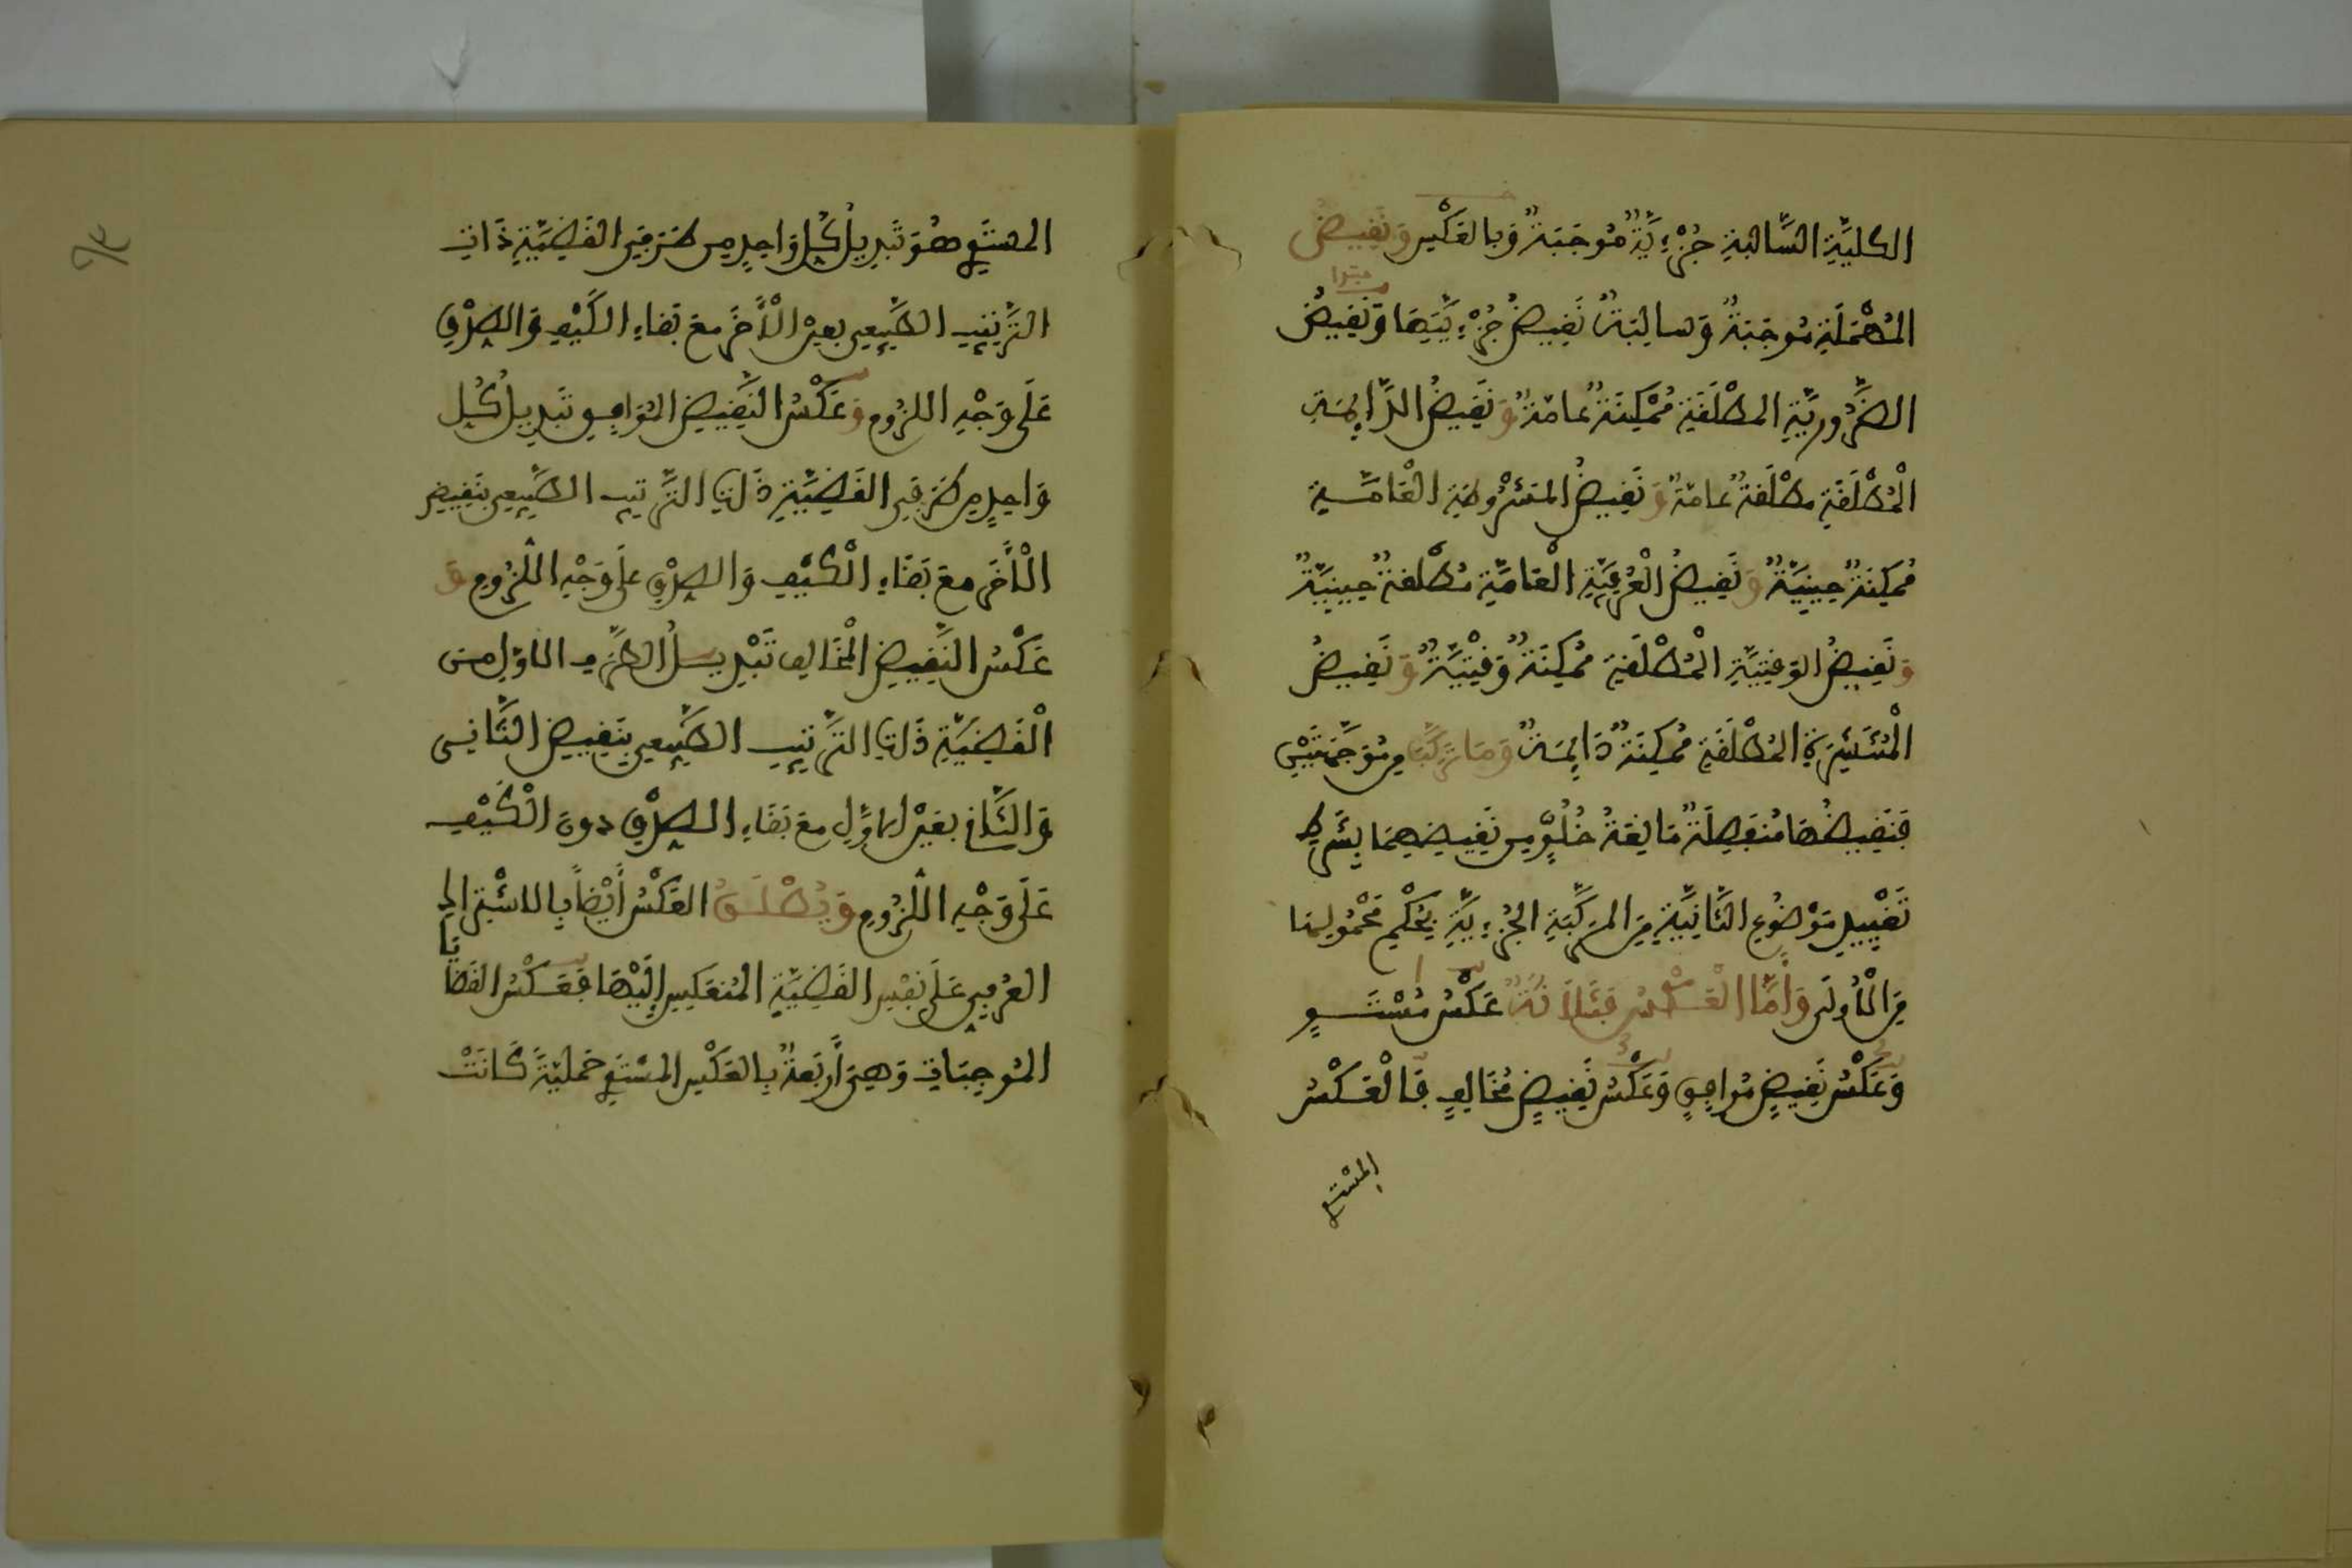 الكليَّةِ السَّالبةِ جُزْءِيَّةٌ مُوجَبَةٌ وَبالعَكْسِ وَنَقِيضُ
المُهْمَلَةِ مُوجَبَةٌ وَسالِبَةٌ نَقِيضُ جُزْءِيَّتِهَا وَنَقِيضُ
مبتدا
الضَّرُورِيَّةِ المطْلَقَةِ مُمْكِنَةٌ عامَّةٌ وَنَقِيضُ الدَّايِمَةِ
الْمُطْلَقَةِ مطْلَقةٌ عامَّةٌ وَنَقِيضُ المَشْرُوطَةِ الْعَامَّةِ
مُمْكِنَةٌ حِينِيَّةٌ وَنَقِيضُ الْعُرْفِيَّةِ الْعَامَّةِ مُطْلَقَةٌ حِينِيَّةٌ
وَنَقِيضُ الوَقْتِيَّةِ الْمُطْلَقَةِ مُمْكِنَةٌ وَقْتِيَّةٌ وَنَقِيضُ
الْمُنْتَشِرَةِ المُطْلَقَةِ مُمْكِنَةٌ دَايِمَةٌ وَمَا تَرَكَّبَ مِن مُوَجَّهَتَيْنِ
فَنَقِيضُهَا مُنْفَصِلَةٌ مَانِعَةُ خُلُوٍّ مِن نَقِيضِهِمَا بِشَرْطِ
تَقْيِيدِ مَوْضُوعِ الثَّانِيَةِ مِنَ المرَكَّبَةِ الجُزْءِيَّةِ بِحُكْمِ مَحْمُولِهَا
مِنَ الْأُولَى وَأَمَّا الْعَكْسُ فَثَلَاثَةٌ عَكْسُ مُسْتَوٍ
وَعَكْسُ نَقِيضٍ مُوافِقٍ وَعَكْسُ نَقِيضٍ مُخَالِفٍ فَالْعَكْسُ
المسْتَوِي
المستَوِي هُوَ تَبْدِيلُ كُلِّ وَاحِدٍ مِن طَرَفَيِ القَضِيَّةِ ذَاتِ
التَّرْتِيبِ الطَّبِيعِي بعَيْنِ الْأَخَرِ مَعَ بَقَاءِ الكَيْفِ وَالصِّدْقِ
عَلَى وَجْهِ اللزُومِ وَعَكْسُ النَّقِيضِ المُوَافِقِ تَبْدِيلُ كُلِّ
وَاحِدٍ مِن طَرَفَيِ القَضِيَّةِ ذَاتِ التَّرتيبِ الطَّبِيعِي بنَقِيضِ
الْأَخَرِ مَعَ بَقَاءِ الْكَيْفِ وَالصِّدْقِ عَلَى وَجْهِ اللُّزُومِ وَ
عَكْسُ النَّقِيضِ الْمُخَالِفِ تَبْدِيلُ الطَّرَفِ الاوَّلِ مِنَ
الْقَضِيَّةِ ذَاتِ التَّرْتِيبِ الطَّبِيعِي بِنَقِيضِ الثَّانِي
وَالثَّانِي بعَيْنِ الاوَّلِ مَعَ بَقَاءِ الصِّدْقِ دونَ الْكَيْفِ
عَلَى وَجْهِ اللُّزُومِ وَيُطْلَقُ العَكْسُ أَيْضاً بِالاشْتِرَاكِ
العُرْفِي عَلَى نَفْسِ القَضِيَّةِ المُنعَكِسِ إِلَيْهَا فَعَكْسُ القَضَايَا
المُوجِبَاتِ وَهِيَ أَرْبَعَةٌ بِالعَكْسِ المسْتَوِي حَمْلِيَّةً كَانَتْ